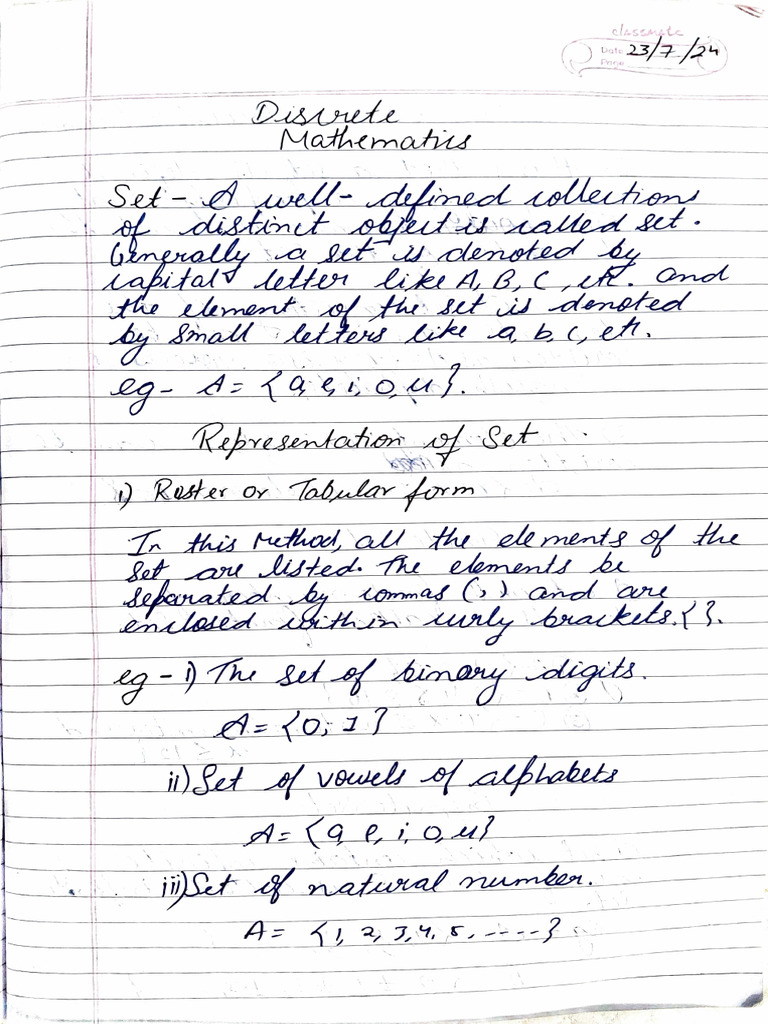 classmate
Date 23/7/24
Page
Discrete
Mathematics
Set - A well-defined collections
of distinct object is called set.
Generally a set is denoted by
capital letter like A, B, C, etc. and
the element of the set is denoted
by small letters like a, b, c, etc.
eg - A = {a, e, i, o, u}.
Representation of Set
i) Roster or Tabular form
In this Method, all the elements of the
set are listed. The elements be
separated by commas (,) and are
enclosed within curly brackets.{ }.
eg - i) The set of binary digits.
A = {0, 1}
ii) Set of vowels of alphabets
A = {a, e, i, o, u}
iii) Set of natural number.
A = {1, 2, 3, 4, 5, -----}